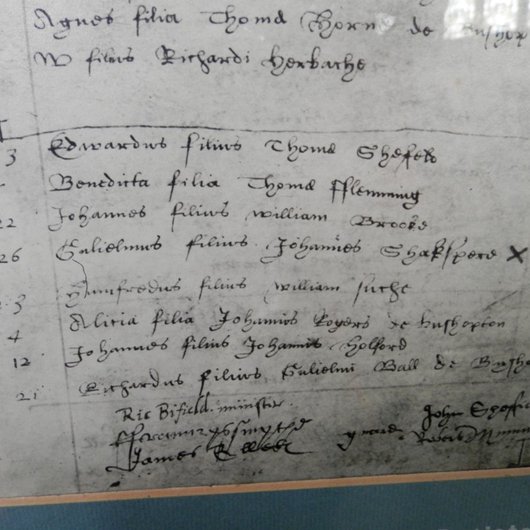 Agnes filia Thomæ Horne de
W filius Richardi Herbache
3 Edwardus filius Thomæ Shefeld
Benedicta filia Thomæ Fflemming
22 Johannes filius William Brooke
26 Gulielmus filius Johannes Shakspere X
3 Humfredus filius William suche
4 Alicia filia Johannis Rogers de bushopton
12 Johannes filius Johannis Holford
21 Richardus filius Gulielmi Ball de
Ric Bifield minister John
James